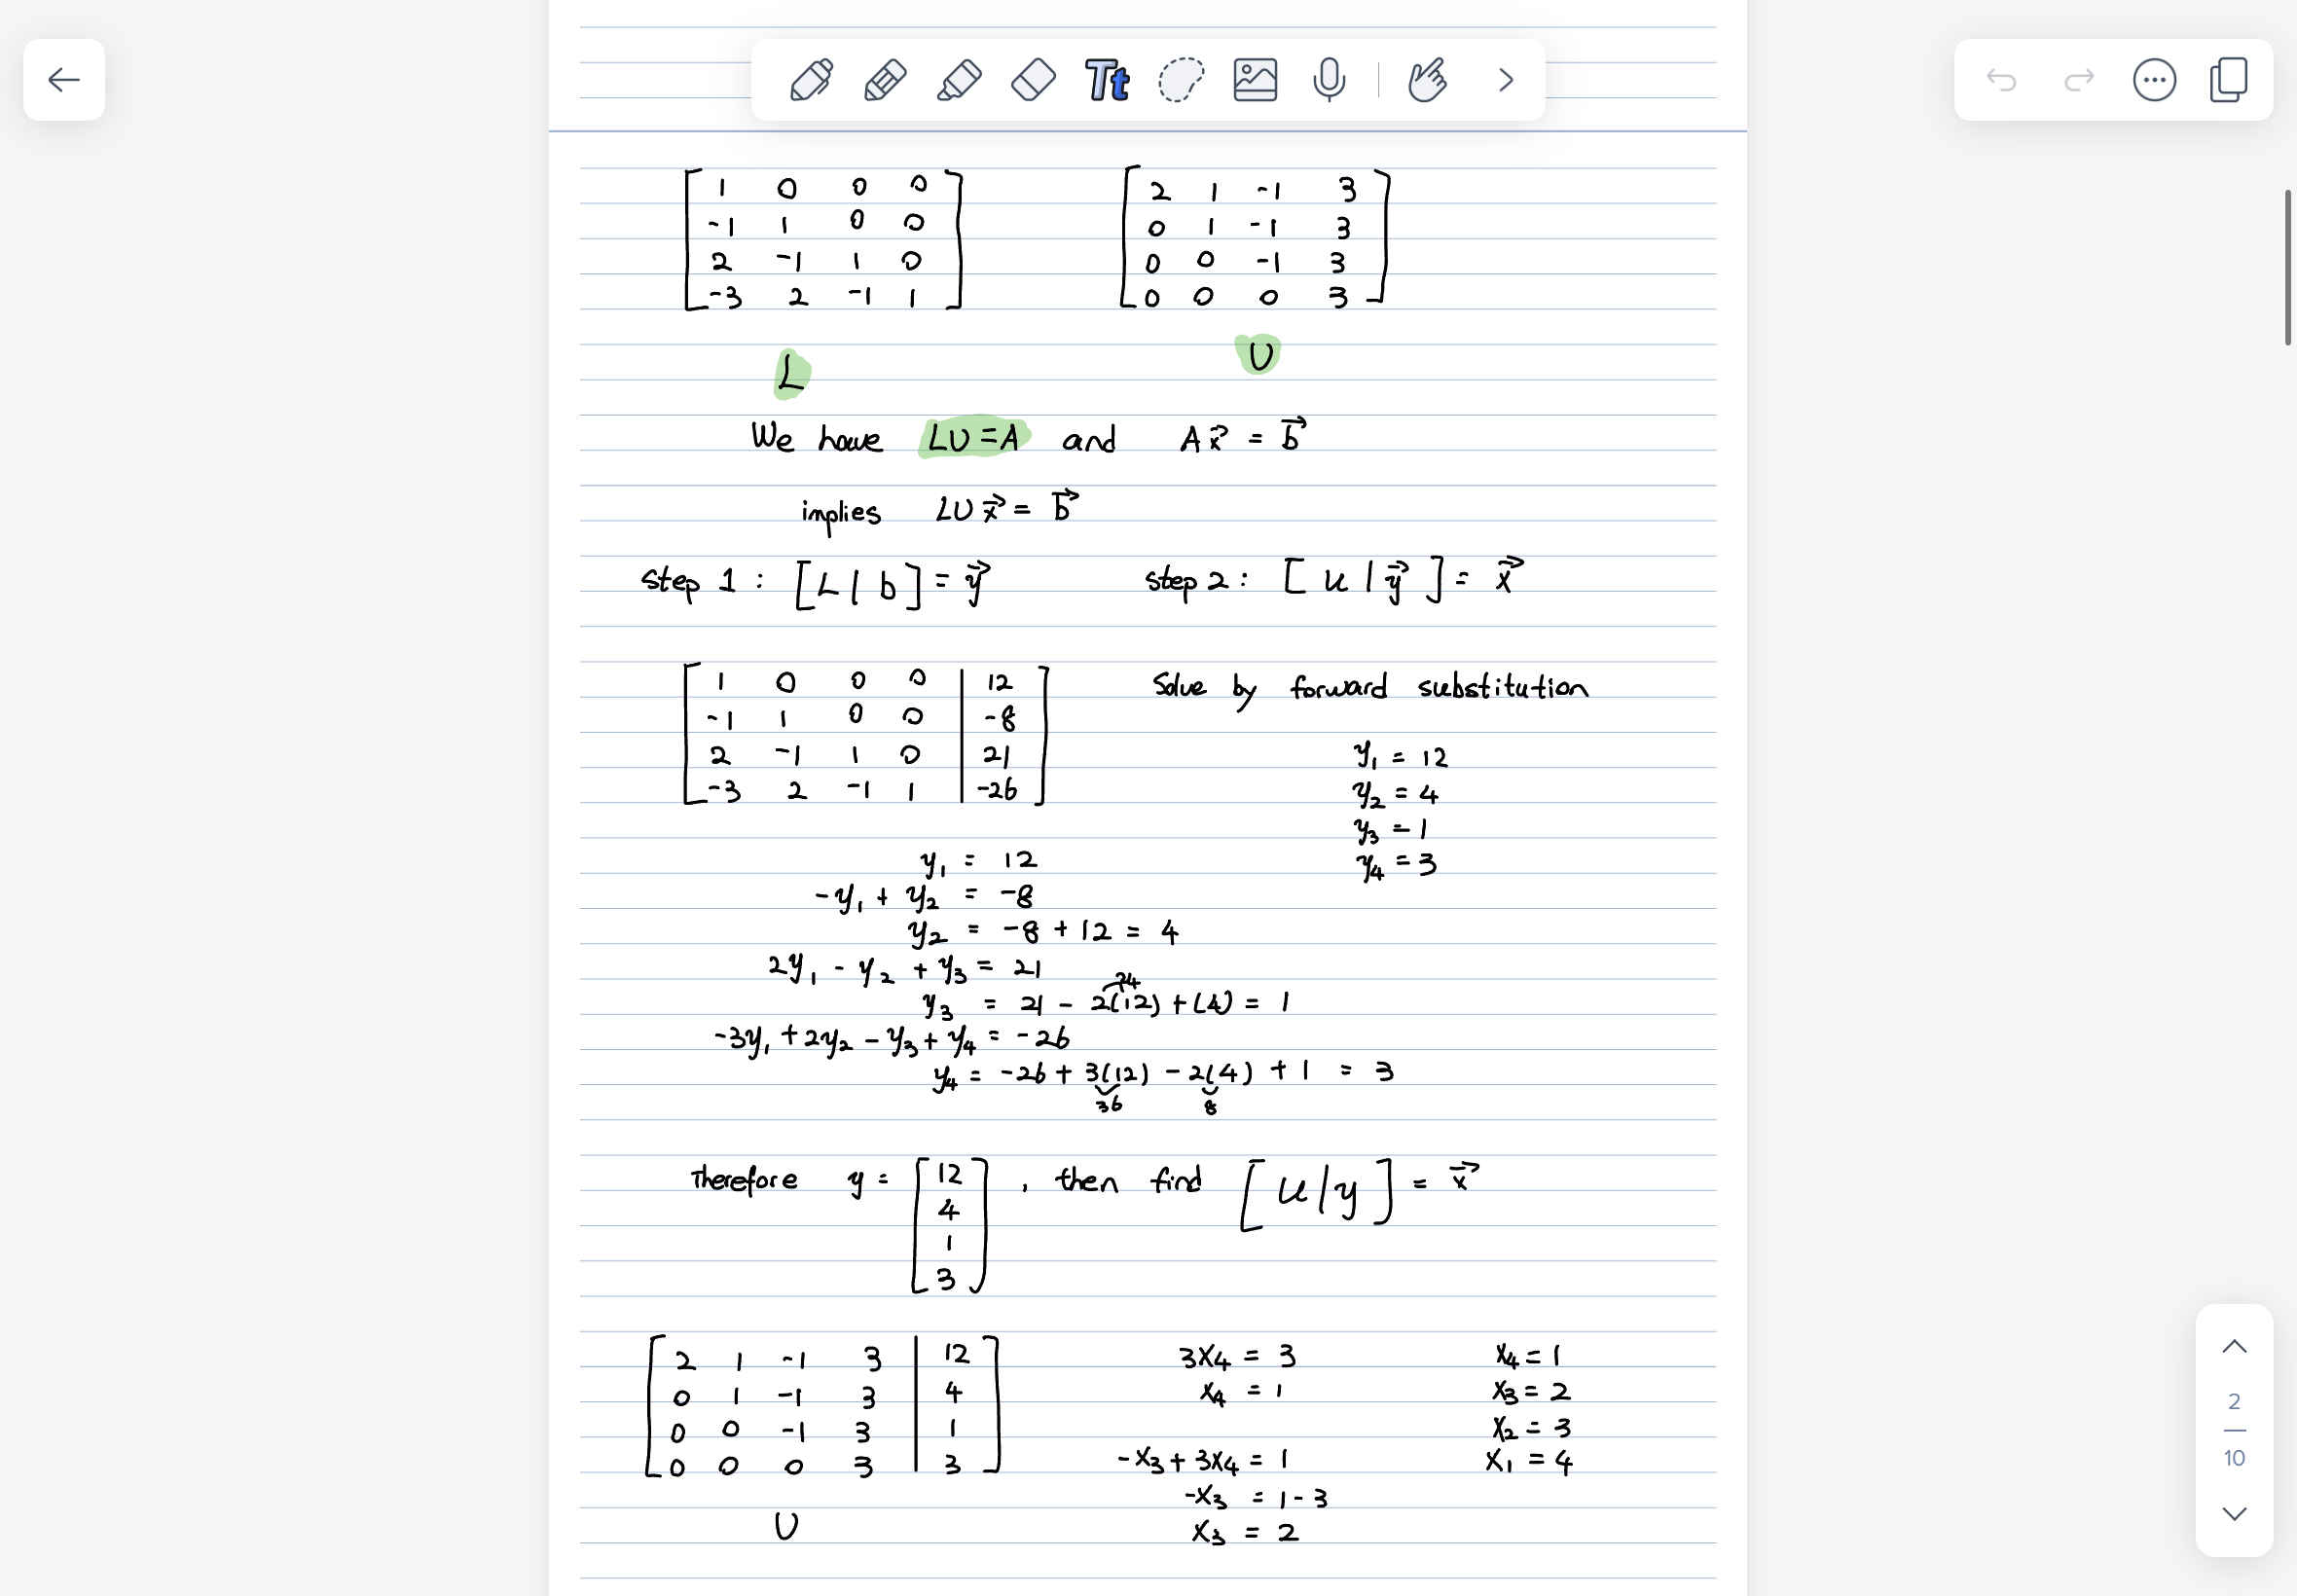 1 0 0 0
-1 1 0 0
2 -1 1 0
-3 2 -1 1
L
2 1 -1 3
0 1 -1 3
0 0 -1 3
0 0 0 3
U
We have LU = A and Ax⃗ = b⃗
implies LUx⃗ = b⃗
step 1 : [L | b] = y⃗
step 2 : [u | y⃗] = x⃗
1 0 0 0 | 12
-1 1 0 0 | -8
2 -1 1 0 | 21
-3 2 -1 1 | -26
Solve by forward substitution
y₁ = 12
y₂ = 4
y₃ = 1
y₄ = 3
y₁ = 12
-y₁ + y₂ = -8
y₂ = -8 + 12 = 4
2y₁ - y₂ + y₃ = 21
24
y₃ = 21 - 2(12) + (4) = 1
-3y₁ + 2y₂ - y₃ + y₄ = -26
y₄ = -26 + 3(12) - 2(4) + 1 = 3
36 8
Therefore y = [12 4 1 3] , then find [u | y] = x⃗
2 1 -1 3 | 12
0 1 -1 3 | 4
0 0 -1 3 | 1
0 0 0 3 | 3
U
3x₄ = 3
x₄ = 1
-x₃ + 3x₄ = 1
-x₃ = 1 - 3
x₃ = 2
x₄ = 1
x₃ = 2
x₂ = 3
x₁ = 4
Tt
2
10